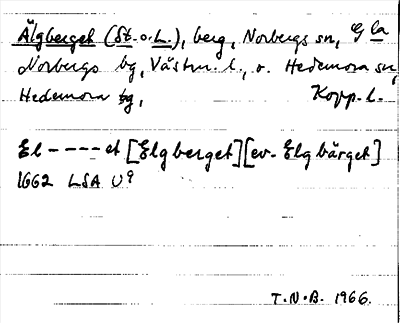 Älgberget (St. o. L.), berg, Norbergs sn, Gla
Norbergs bg, Västm. l., o. Hedemora sn,
Hedemora tg, Kopp. l.
El----et [Elgberget][ev. Elgbärget]
1662 LSA U⁹
T.N.B. 1966.